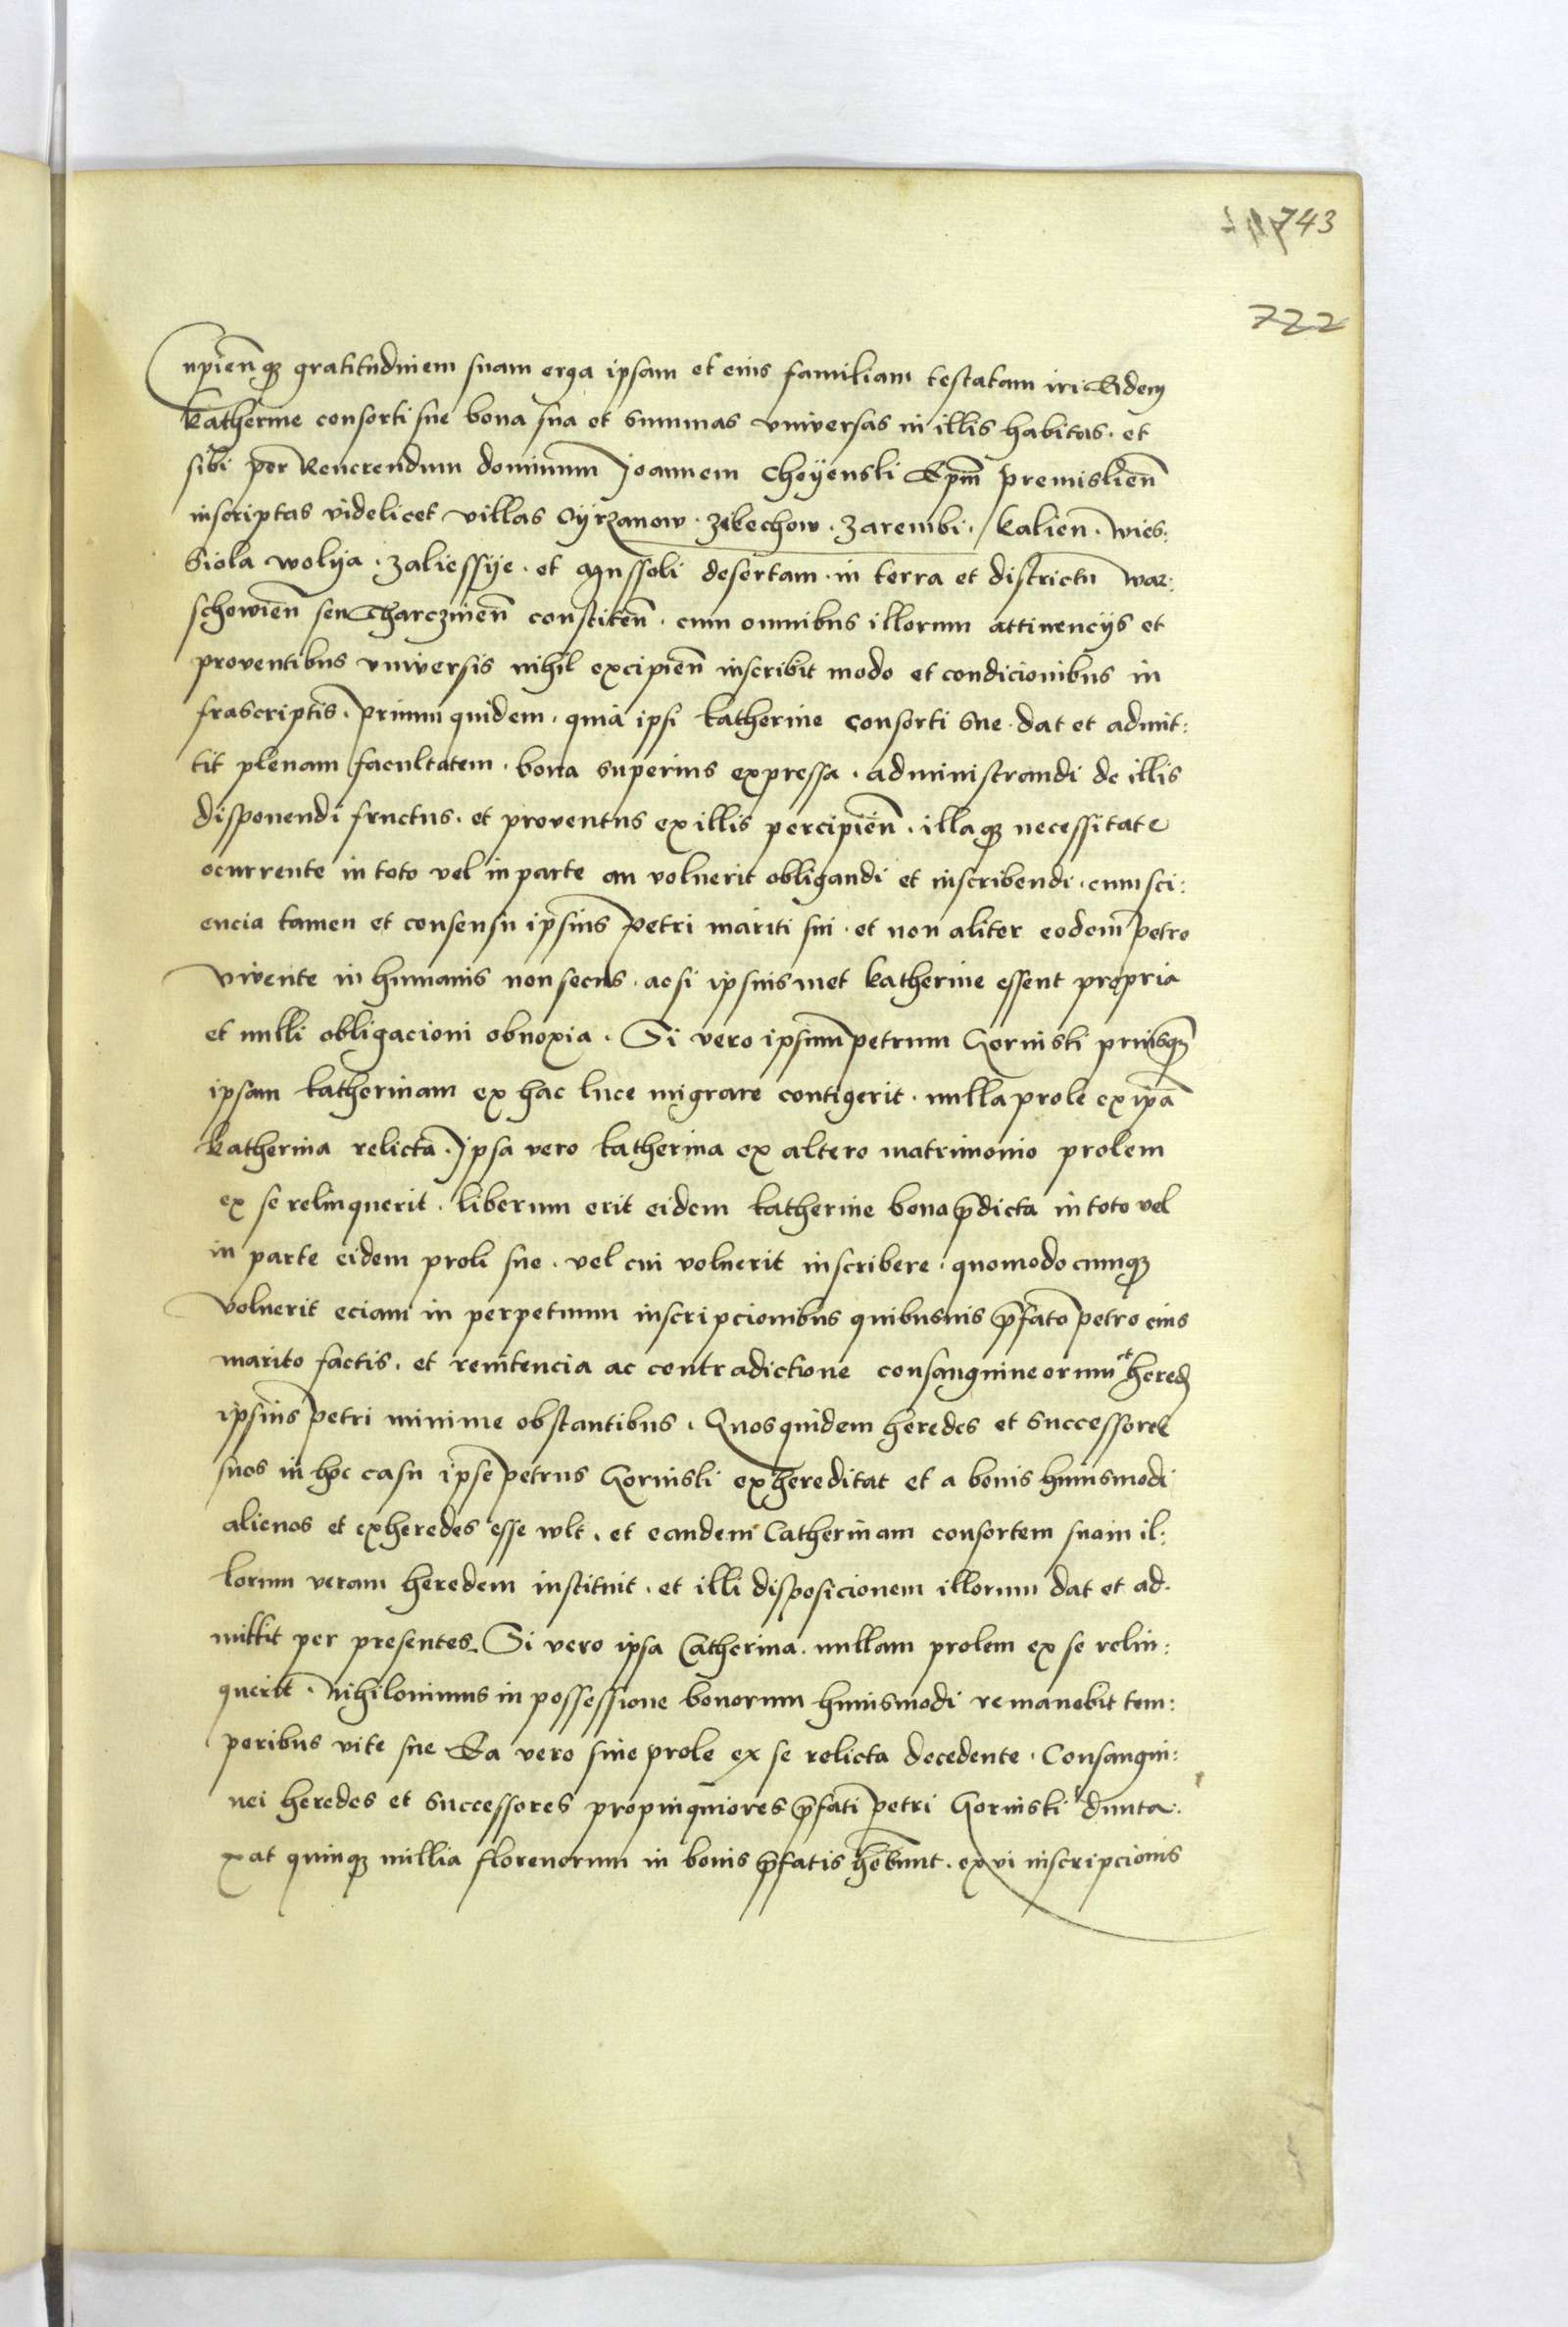 743
722
Cupienq gratitudinem suam erga ipsam et eius familiam testatam iri Eidem
Katherine consorti sue bona sua et summas universas in illis habitas. et
sibi per Reuerendum dominum Joannem Choyenski Epm premislien
inscriptas videlicet villas Oyrzanow. Zelechow. Zarembi. Kalien. Wies:
Siola wolya. Zaliessye. et Mussoli desertam. in terra et districtu war:
schowien seu Tharczinen consisten. cum omnibus illorum attinencijs et
proventibus vniversis nihil excipien inscribit modo et condicionibus in
frascriptis. primum quidem. quia ipsi katherine consorti sue. dat et admit:
tit plenam facultatem. bona superius expressa. administrandi de illis
disponendi fructus. et proventus ex illis percipien. illaq necessitate
ocurrente in toto vel in parte an voluerit obligandi et inscribendi. cum sci:
encia tamen et consensu ipsius petri mariti sui. et non aliter eodem petro
vivente in humanis non secus. ac si ipsius met katherine essent propria
et nulli obligacioni obnoxia. Si vero ipsum petrum Gorinski priusq
ipsam katherinam ex hac luce migrare contigerit. nulla prole ex ipa
katherina relicta. Ipsa vero katherina ex altero matrimonio prolem
ex se relinquerit. liberum erit eidem katherine bona pdicta in toto vel
in parte eidem proli sue. vel cui voluerit inscribere. quomodocunq
voluerit eciam in perpetuum inscripcionibus quibusuis pfato petro eius
marito factis. et renitencia ac contradictione consanguineorum et hered
ipsius petri minime obstantibus. Quosquidem heredes et successores
suos in hoc casu ipse petrus Gorinski exhereditat et a bonis huiusmodi
alienos et exheredes esse wlt. et eandem Catherinam consortem suam il:
lorum veram heredem instituit. et illi disposicionem illorum dat et ad.
mittit per presentes. Si vero ipsa Catherina. nullam prolem ex se relin:
querit. nihilominus in possessione bonorum huiusmodi remanebit tem:
poribus vite sue Ea vero sine prole ex se relicta decedente. Consangui:
nei heredes et successores propinquiores pfati petri Gorinski dunta.
xat quinq millia florenorum in bonis pfatis hebunt. ex vi inscripcionis